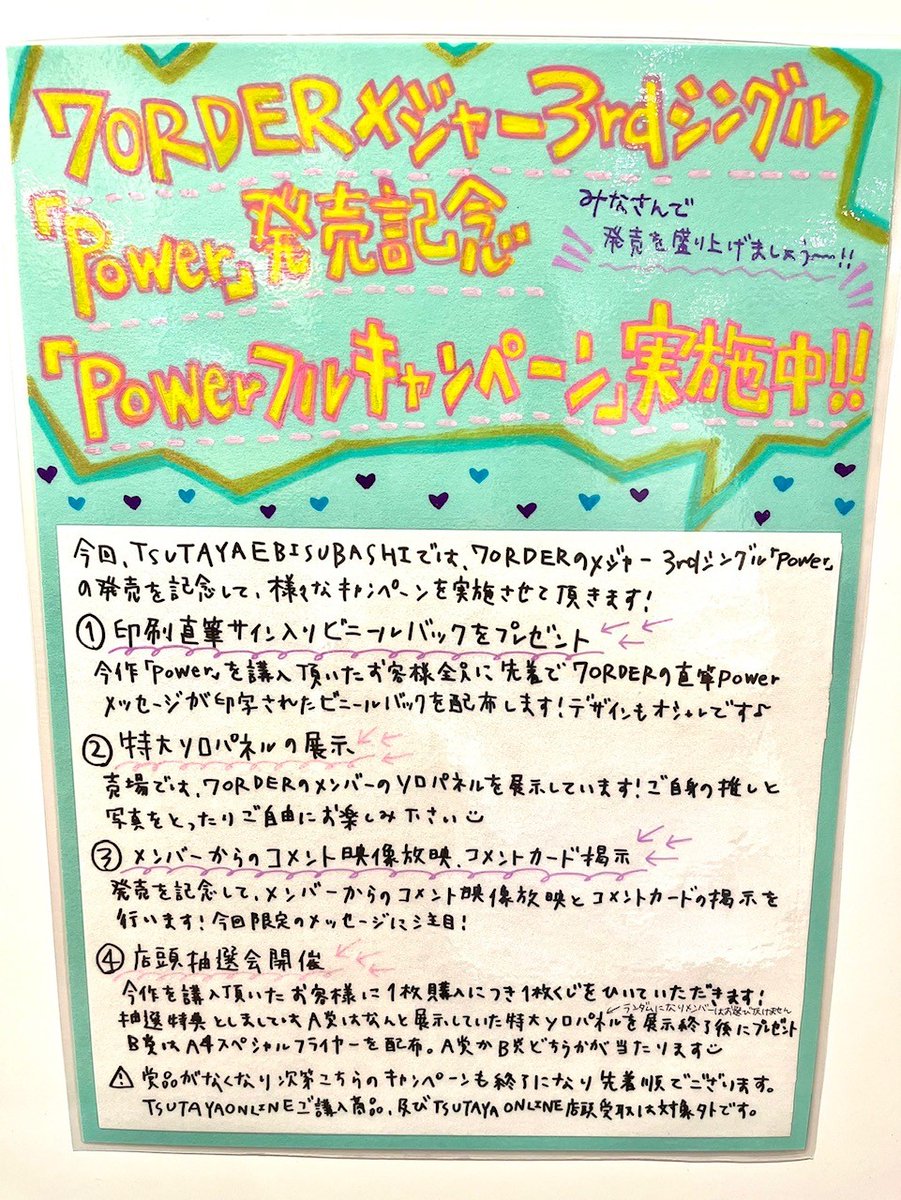 7ORDERメジャー3rdシングル
「Power」発売記念
みなさんで
発売を盛り上げましょう〜!!
「Powerフルキャンペーン」実施中!!
今回、TSUTAYAEBISUBASHIでは、7ORDERのメジャー3rdシングル「Power」
の発売を記念して、様々なキャンペーンを実施させて頂きます!
① 印刷直筆サイン入りビニールバックをプレゼント
今作「Power」を講入頂いたお客様全員に先着で7ORDERの直筆Power
メッセージが印字されたビニールバックを配布します!デザインもオシャレです♪
② 特大ソロパネルの展示
売場では、7ORDERのメンバーのソロパネルを展示しています!ご自身の推しと
写真をとったりご自由にお楽しみ下さい
③ メンバーからのコメント映像放映、コメントカード掲示
発売を記念して、メンバーからのコメント映像放映とコメントカードの掲示を
行います!今回限定のメッセージに注目!
④ 店頭抽選会開催
今作を講入頂いたお客様に1枚購入につき1枚くじをひいていただきます!
ランダムになりメンバーはお選び頂けません
抽選特典としましてはA賞はなんと展示していた特大ソロパネルを展示終了後にプレゼント
B賞はA4スペシャルフライヤーを配布。A賞かB賞どちらかが当たります
⚠ 賞品がなくなり次第こちらのキャンペーンも終了になり先着順でございます。
TSUTAYAONLINEご講入商品、及びTSUTAYA ONLINE店頭受取は対象外です。